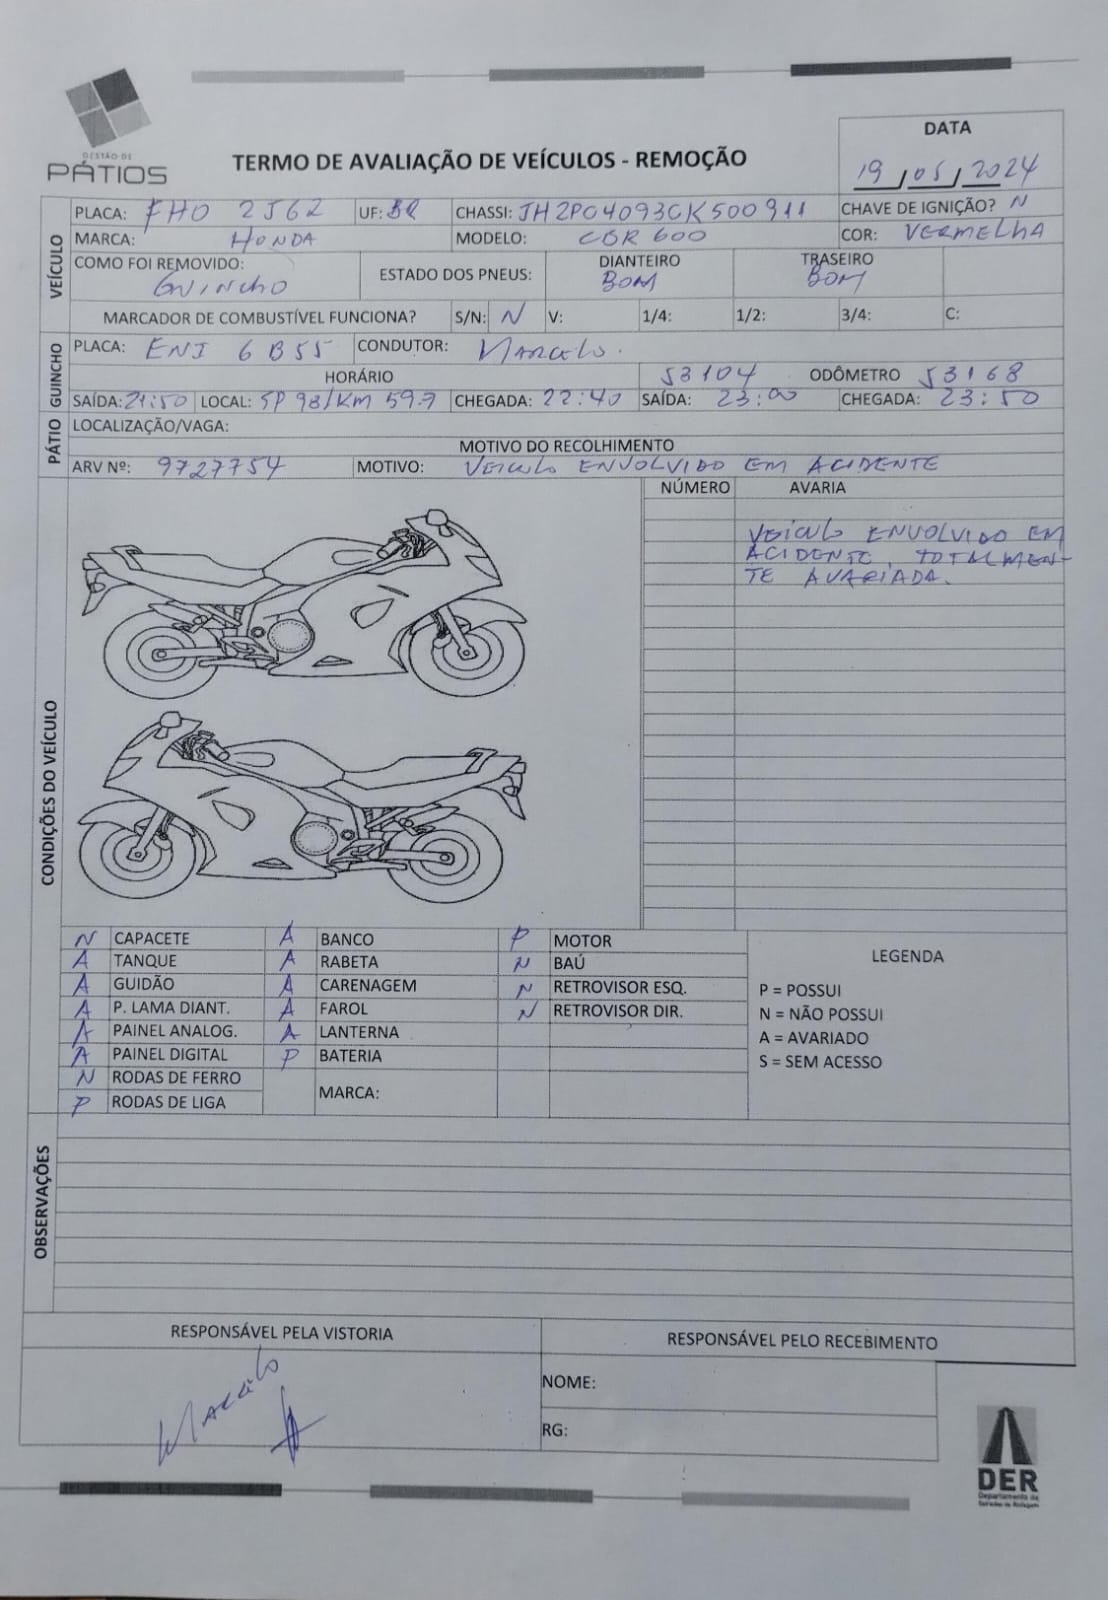 GESTÃO DE
PÁTIOS
TERMO DE AVALIAÇÃO DE VEÍCULOS - REMOÇÃO
DATA
19/05/2024
VEÍCULO
PLACA: FHO 2J62 UF: BR CHASSI: JH2PC4093CK500911 CHAVE DE IGNIÇÃO? N
MARCA: HONDA MODELO: CBR 600 COR: VERMELHA
COMO FOI REMOVIDO: GUINCHO ESTADO DOS PNEUS: DIANTEIRO BOM TRASEIRO BOM
MARCADOR DE COMBUSTÍVEL FUNCIONA? S/N: N V: 1/4: 1/2: 3/4: C:
GUINCHO
PLACA: ENJ 6B55 CONDUTOR: MARCELO.
HORÁRIO 53104 ODÔMETRO 53168
SAÍDA: 21:50 LOCAL: SP 98/KM 59.7 CHEGADA: 22:40 SAÍDA: 23:00 CHEGADA: 23:50
PÁTIO
LOCALIZAÇÃO/VAGA:
MOTIVO DO RECOLHIMENTO
ARV Nº: 9727754 MOTIVO: VEICULO ENVOLVIDO EM ACIDENTE
CONDIÇÕES DO VEÍCULO
NÚMERO AVARIA
VEÍCULO ENVOLVIDO EM
ACIDENTE, TOTALMEN-
TE AVARIADA.
N CAPACETE A BANCO P MOTOR
A TANQUE A RABETA N BAÚ
A GUIDÃO A CARENAGEM N RETROVISOR ESQ.
A P. LAMA DIANT. A FAROL N RETROVISOR DIR.
A PAINEL ANALOG. A LANTERNA
A PAINEL DIGITAL P BATERIA
N RODAS DE FERRO
P RODAS DE LIGA
MARCA:
LEGENDA
P = POSSUI
N = NÃO POSSUI
A = AVARIADO
S = SEM ACESSO
OBSERVAÇÕES
RESPONSÁVEL PELA VISTORIA
Marcelo
RESPONSÁVEL PELO RECEBIMENTO
NOME:
RG:
DER
Departamento de
Estradas de Rodagem